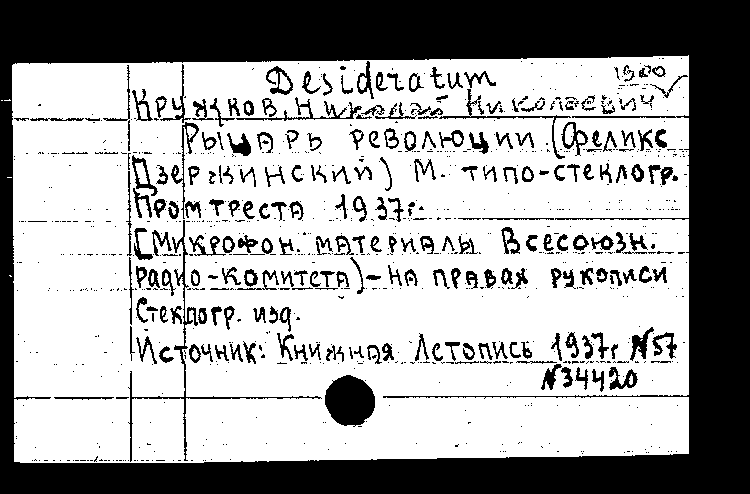 Desideratum
1900
Кружков, Николай Николаевич
Рыцарь революции (Феликс
Дзержинский) М. типо-стеклогр.
Промтреста 1937г.
[Микрофон. материалы Всесоюзн.
радио-комитета) - на правах рукописи
Стеклогр. изд.
Источник: Книжная Летопись 1937г N57
N34420